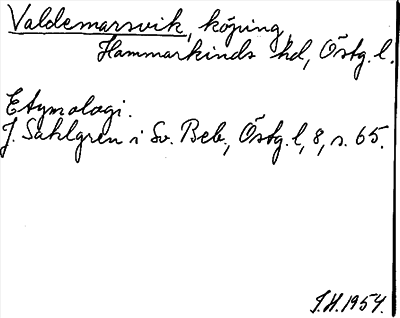 Valdemarsvik, köping,
Hammarkinds hd, Östg. l.
Etymologi.
J. Sahlgren i Sv. Beb., Östg. l, 8, s. 65.
J.H. 1954.